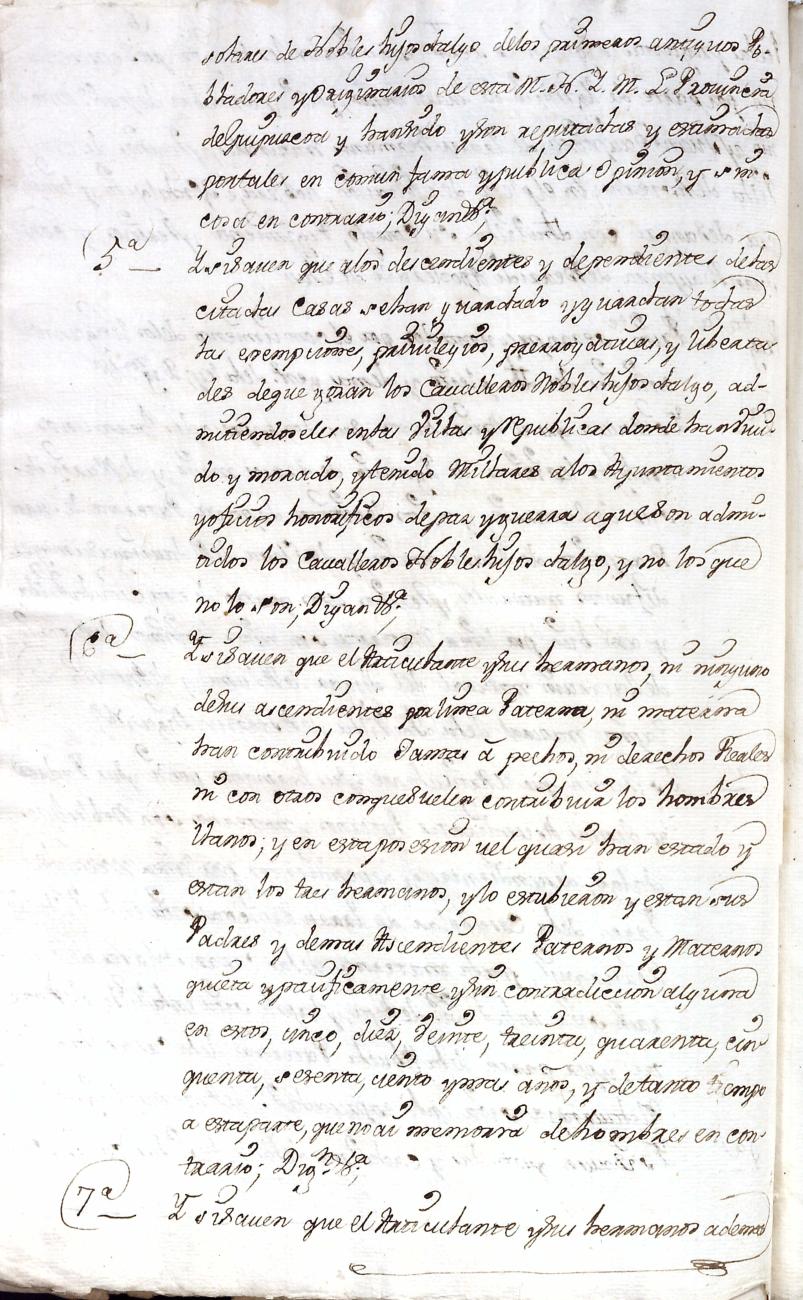 solares de Nobles hijosdalgo delos primeros antiguos Po-
bladores y Originarios de esta M. N. Y. M. L. Provincia
deGuipuzcoa y hansido yson reputadas y estimadas
portales en comun fama ypublica Opinion, y sin
cosa en contrario; Digan &.ª
5ª Y sisaven que alos descendientes y dependientes delas
citadas Casas sehan guardado yguardan todas
las exempciones, privilegios, prerrogativas, y liberta-
des deque gozan los Cavalleros Nobles hijosdalgo, ad-
mitiendoseles enlas Villas yRepublicas donde hanvivi-
do y morado, ytenido Millares alos Ayuntamientos
yoficios honorificos depaz yguerra aqueson admi-
tidos los Cavalleros Nobles hijos dalgo, y no los que
no lo son, Digan &.ª
6ª Y sisaven que el Articulante ysus hermanos, ni ninguno
desus ascendientes por linea Paterna, ni materna
han contribuido Jamas á pechos, ni derechos Reales
ni con otros conquesuelen contribuir los hombres
llanos; y en estaposesion vel quasi han estado y
estan los tres hermanos, ylo estubieron y estan sus
Padres y demas Ascendientes Paternos y Maternos
quieta ypacificamente ysin contradiccion alguna
en estos, cinco, diez, veinte, treinta, quarenta, cin-
quenta, sesenta, ciento ymas años, y detanto tiempo
a estaparte, quenoai memoria dehombres en con-
trario; Dign &.ª
7ª Y sisaven que el Articulante ysus hermanos ademas